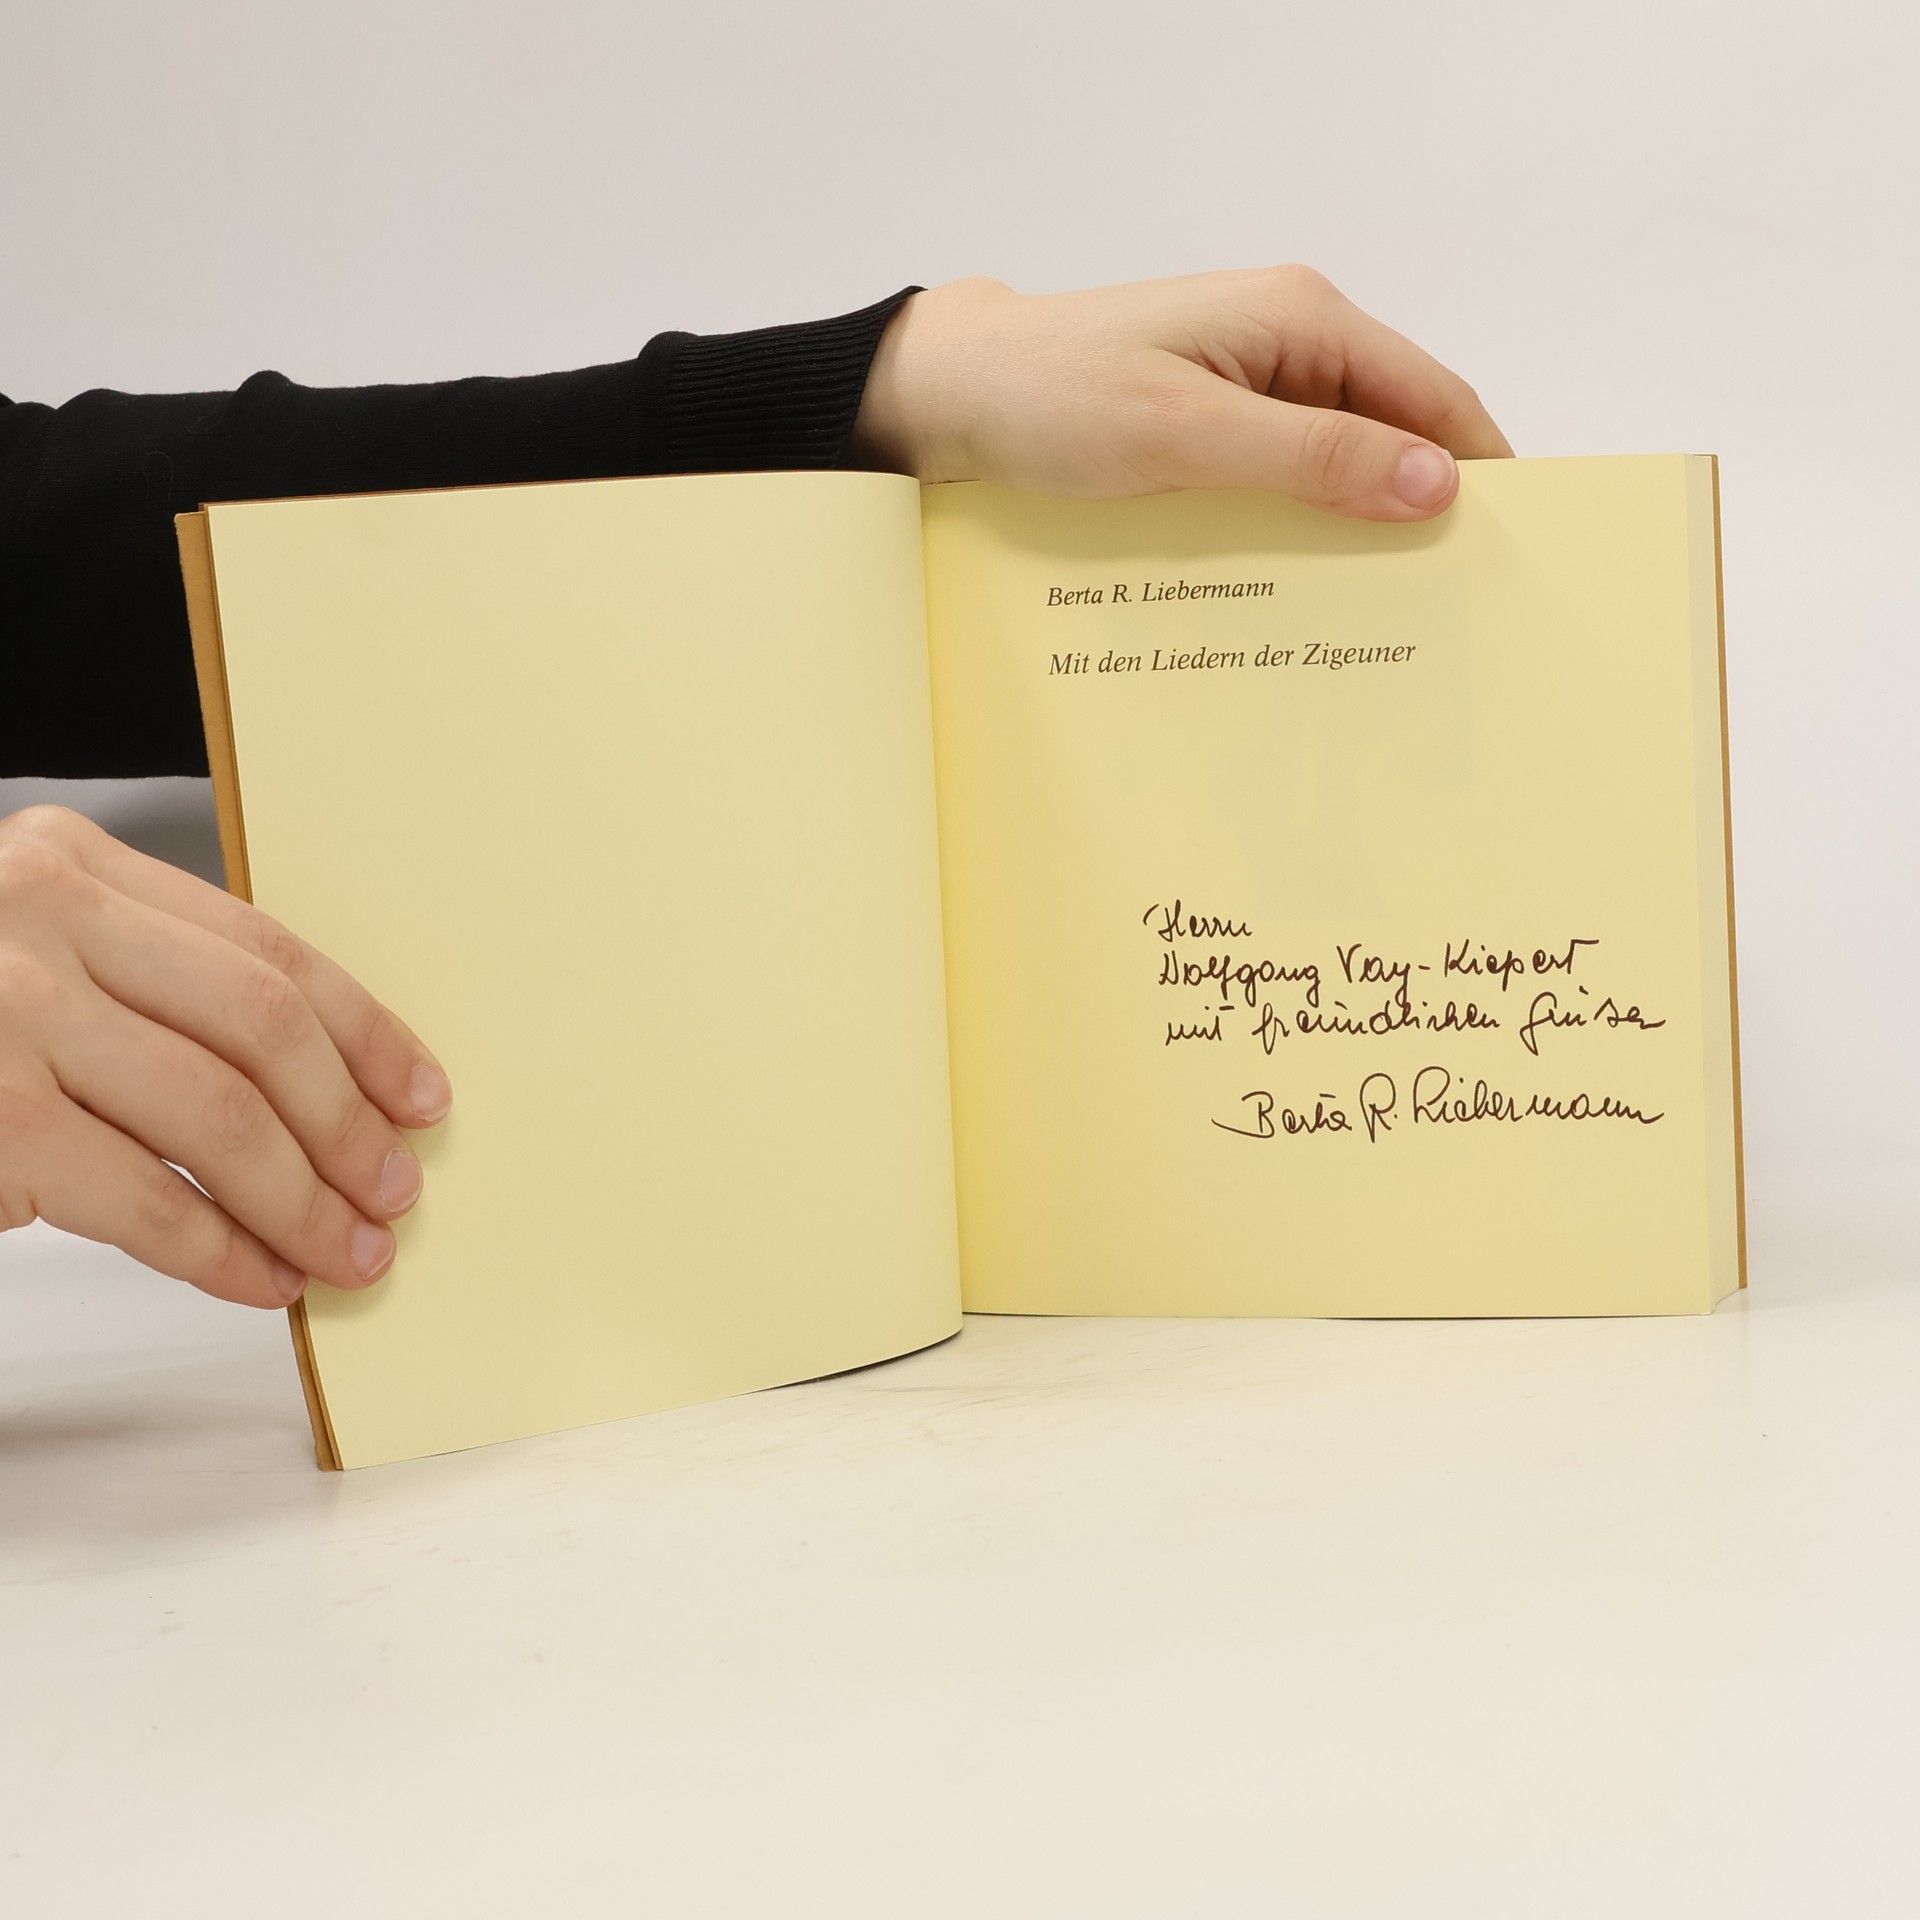 Berta R. Liebermann
Mit den Liedern der Zigeuner
Herrn
Wolfgang Vay-Kiepert
mit freundlichen Grüsen
Berta R. Liebermann